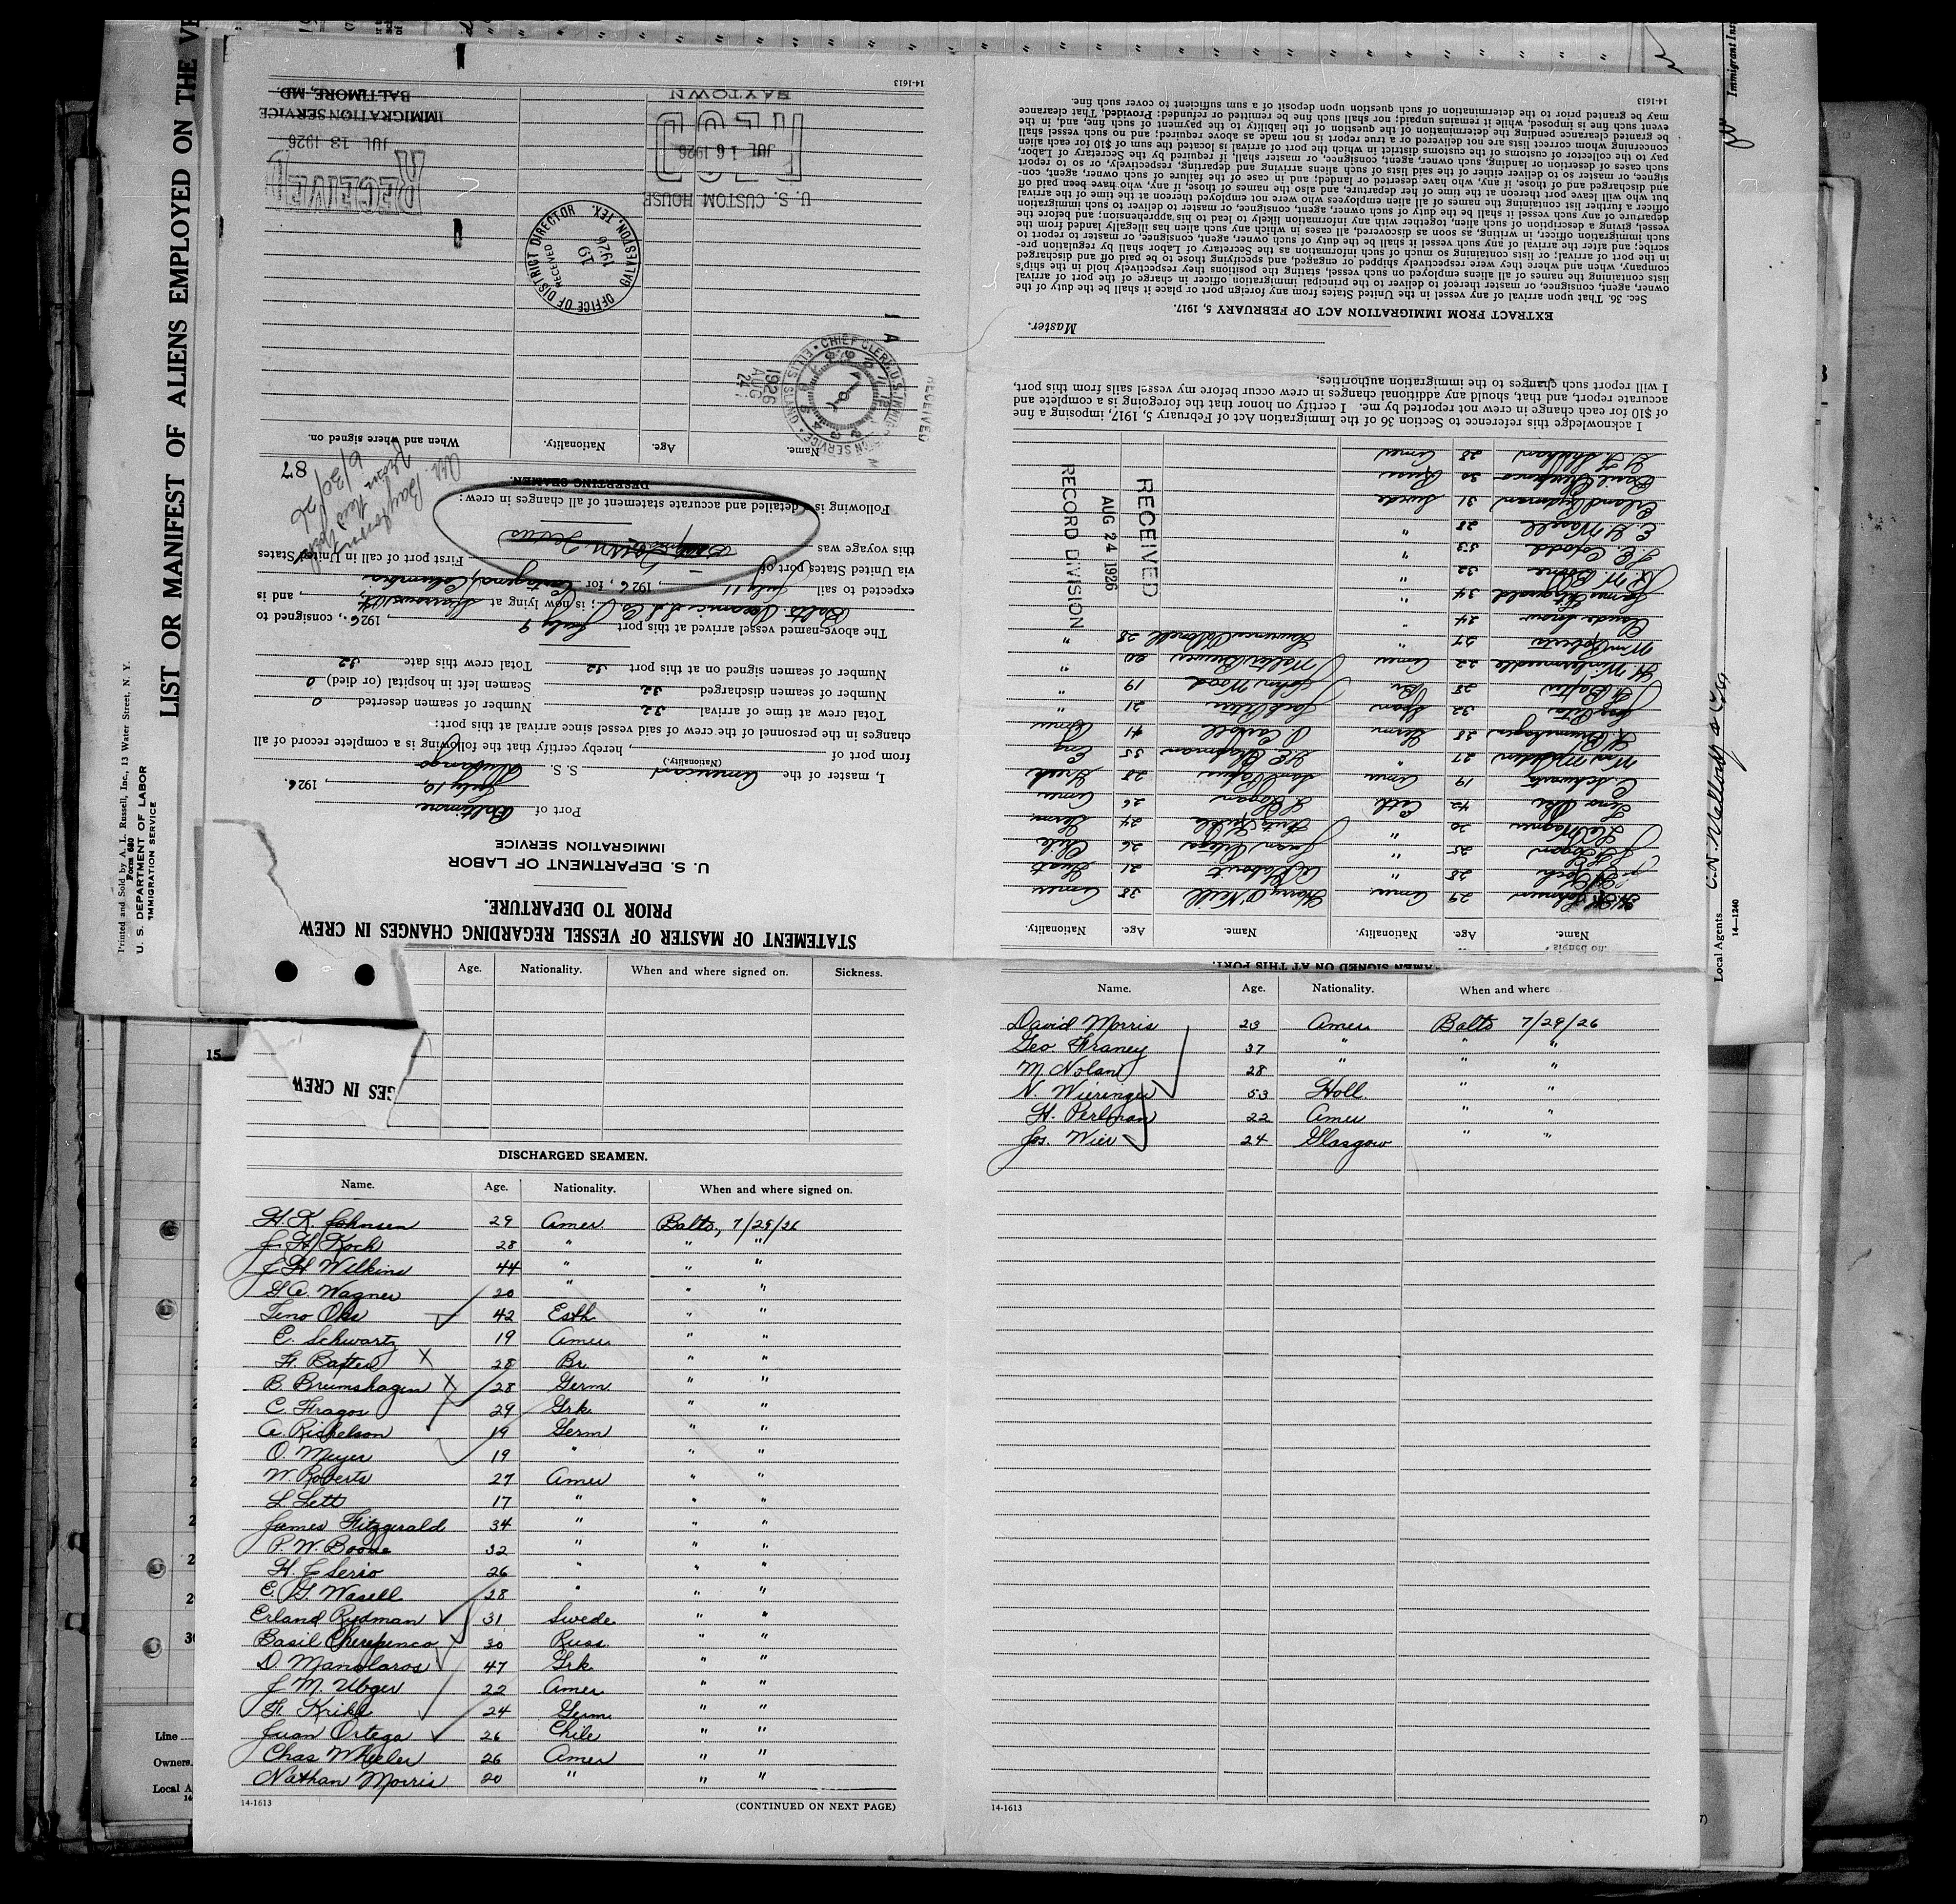 LIST OR MANIFEST OF ALIENS EMPLOYED ON THE VE
Printed and Sold by A. L. Russell, Inc., 13 Water Street, N. Y.
Form 680
U. S. DEPARTMENT OF LABOR
IMMIGRATION SERVICE
STATEMENT OF MASTER OF VESSEL REGARDING CHANGES IN CREW
PRIOR TO DEPARTURE.
U. S. DEPARTMENT OF LABOR
IMMIGRATION SERVICE
Port of Baltimore
July 10, 1926.
I, master of the American S. S.
(Nationality.)
from port of , hereby certify that the following is a complete record of all
changes in the personnel of the crew of said vessel since arrival at this port:
Total crew at time of arrival 32 Number of seamen deserted 0
Number of seamen discharged 32 Seamen left in hospital (or died) 0
Number of seamen signed on at this port 32 Total crew this date 32
The above-named vessel arrived at this port July 9, 1926., consigned to
Balto. Oceanic S.S. Co.; is now lying at , and is
expected to sail July 11, 1926, for Cartagena, Columbia
via United States port of First port of call in United States
this voyage was Texas
Following is detailed and accurate statement of all changes in crew:
DESERTING SEAMEN.
87
6/30/26
Name. Age. Nationality. When and where signed on.
RECEIVED
CHIEF CLERK, U.S. IMMIGRATION SERVICE • ELLIS ISLAND, N.Y.
1926 AUG 24
OFFICE OF DISTRICT DIRECTOR
RECEIVED
19
1926
GALVESTON, TEX.
U. S. CUSTOM HOUSE
RECD
JUL 16 1926
BAYTOWN
RECEIVED
JUL 13 1926
IMMIGRATION SERVICE
BALTIMORE, MD.
14-1613
SEAMEN SIGNED ON AT THIS PORT.
signed on.
Name. Age. Nationality. Name. Age. Nationality.
H. K. Johnsen 29 Amer. Harry O'Neill 38 Amer
J. H. Koch 28 " 21
25 " Juan Ortega 26 Chile
Wagner 20 " Fritz Krikl 24 Germ.
Teno Oks 42 Esth 26 Amer
E. Schwartz 19 Amer 28 Greek
27 " Chapman 35 Eng
B. Brumshagen 28 Germ 41 Amer
32 Span Jack 21 "
H. Baxter 28 Br. John Wood 19 "
22 Amer Walter 20 "
Wm Roberts 27 " Lawrence 28 "
Claude 24 "
James Fitzgerald 34 "
P. W. Boone 32 "
53 "
E. G. Wasell 28 "
Erland Rydman 31 Swede
Basil Cherepenco 30 Russ
28 Amer
RECEIVED
AUG 24 1926
RECORD DIVISION
I acknowledge this reference to Section 36 of the Immigration Act of February 5, 1917, imposing a fine
of $10 for each change in crew not reported by me. I certify on honor that the foregoing is a complete and
accurate report, and that, should any additional changes in crew occur before my vessel sails from this port,
I will report such changes to the immigration authorities.
Master.
EXTRACT FROM IMMIGRATION ACT OF FEBRUARY 5, 1917.
Sec. 36. That upon arrival of any vessel in the United States from any foreign port or place it shall be the duty of the
owner, agent, consignee, or master thereof to deliver to the principal immigration officer in charge of the port of arrival
lists containing the names of all aliens employed on such vessel, stating the positions they respectively hold in the ship's
company, when and where they were respectively shipped or engaged, and specifying those to be paid off and discharged
in the port of arrival; or lists containing so much of such information as the Secretary of Labor shall by regulation pre-
scribe; and after the arrival of any such vessel it shall be the duty of such owner, agent, consignee, or master to report to
such immigration officer, in writing, as soon as discovered, all cases in which any such alien has illegally landed from the
vessel, giving a description of such alien, together with any information likely to lead to his apprehension; and before the
departure of any such vessel it shall be the duty of such owner, agent, consignee, or master to deliver to such immigration
officer a further list containing the names of all alien employees who were not employed thereon at the time of the arrival
but who will leave port thereon at the time of her departure, and also the names of those, if any, who have been paid off
and discharged and of those, if any, who have deserted or landed; and in case of the failure of such owner, agent, con-
signee, or master so to deliver either of the said lists of such aliens arriving and departing, respectively, or so to report
such cases of desertion or landing, such owner, agent, consignee, or master shall, if required by the Secretary of Labor,
pay to the collector of customs of the customs district in which the port of arrival is located the sum of $10 for each alien
concerning whom correct lists are not delivered or a true report is not made as above required; and no such vessel shall
be granted clearance pending the determination of the question of the liability to the payment of such fine, and, in the
event such fine is imposed, while it remains unpaid; nor shall such fine be remitted or refunded: Provided, That clearance
may be granted prior to the determination of such question upon deposit of a sum sufficient to cover such fine.
14-1613
Immigrant Ins
Local Agents C. H. Mallory & Co.
14-1240
Age. Nationality. When and where signed on. Sickness.
GES IN CREW
15
DISCHARGED SEAMEN.
Name. Age. Nationality. When and where signed on.
H. K. Johnsen 29 Amer. Balto, 7/29/26
J. H. Koch 28 " " "
J H Wilkins 44 " " "
G. A. Wagner 20 " " "
Teno Oks 42 Esth " "
E. Schwartz 19 Amer " "
H. Baxter X 28 Br. " "
B. Brumshagen X 28 Germ " "
C. Fragos 29 Grk. " "
A. Rickelson 19 Germ " "
O. Meyer 19 " " "
W Roberts 27 Amer " "
L. Lett 17 " " "
James Fitzgerald 34 " " "
P. W. Boone 32 " " "
H. J Serio 26 " " "
E. G. Wasell 28 " " "
Erland Rydman 31 Swede " "
Basil Cherepenco 30 Russ. " "
D. Manolaros 47 Grk. " "
J M. Unger 22 Amer " "
F. Krikl 24 Germ. " "
Juan Ortega 26 Chile " "
Chas Wheeler 26 Amer " "
Nathan Morris 20 " " "
14-1613 (CONTINUED ON NEXT PAGE)
Name. Age. Nationality. When and where
David Morris 23 Amer. Balto 7/29/26
Geo. Franey 37 " " "
M. Nolan 28 " " "
N. Wieringer 53 Holl. " "
H. Perlman 22 Amer " "
Jos. Wier 24 Glasgow " "
14-1613
30
Line
Owners
Local A
14